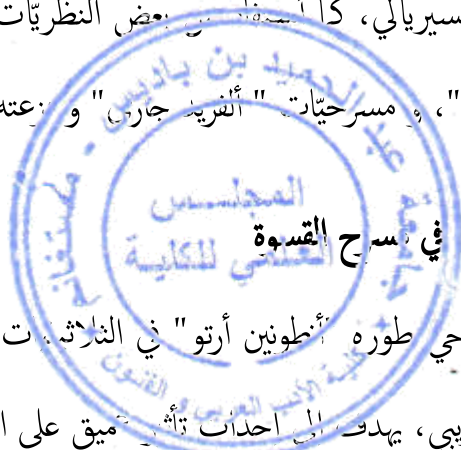 سيريالي، كما استفاد من بعض النظريّات
"، و مسرحيّات " ألفريد جاري" و نزعته
في مسرح القسوة
حي طوره "أنطونين أرتو" في الثلاثينات
يبي، يهدف إلى احداث تأثير عميق على ا
جامعة عبد الحميد بن باديس - مستغانم
المجلس
العلمي للكلية
كلية الأدب العربي و الفنون